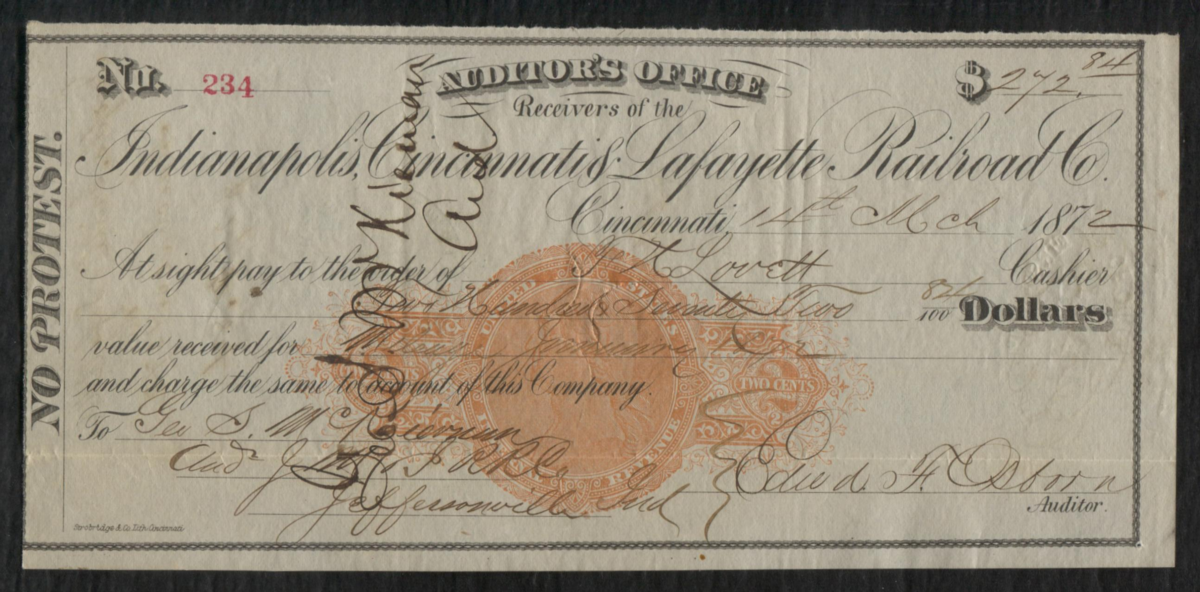 No. 234
AUDITOR'S OFFICE
$272.84
Receivers of the
Indianapolis, Cincinnati & Lafayette Railroad Co.
Cincinnati, 14th Mch 1872
At sight pay to the order of T. K. Lovett Cashier
Two Hundred & Seventy Two 84/100 Dollars
value received for January
and charge the same to account of this Company.
To Geo S. McKiernan
Aud. J. M. & I. R.R. Co.
Jeffersonville Ind
Edwd. F. Osborn
Auditor.
NO PROTEST.
McKiernan
Aud
UNITED STATES
TWO CENTS
REVENUE